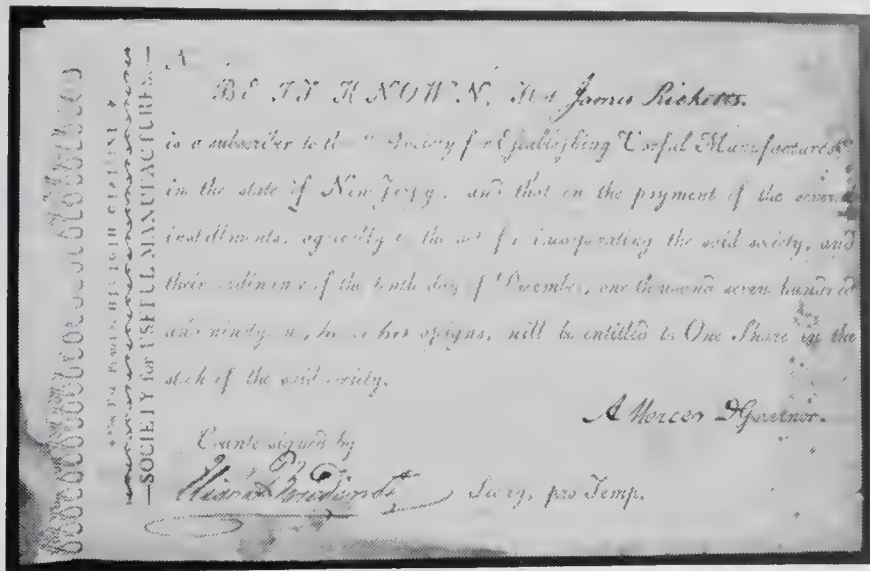 BE IT KNOWN, that James Ricketts.
is a subscriber to the "Society for Establishing Useful Manufactures,"
in the state of New Jersey, and that on the payment of the several
installments, agreeably to the act for incorporating the said society, and
their ordinance of the tenth day of December, one thousand seven hundred
and ninety one, he or his assigns, will be entitled to One Share in the
stock of the said society.
A Mercer DGovernor.
Countersigned by
Elisha Boudinot Secry, pro Temp.
—SOCIETY for USEFUL MANUFACTURES.—